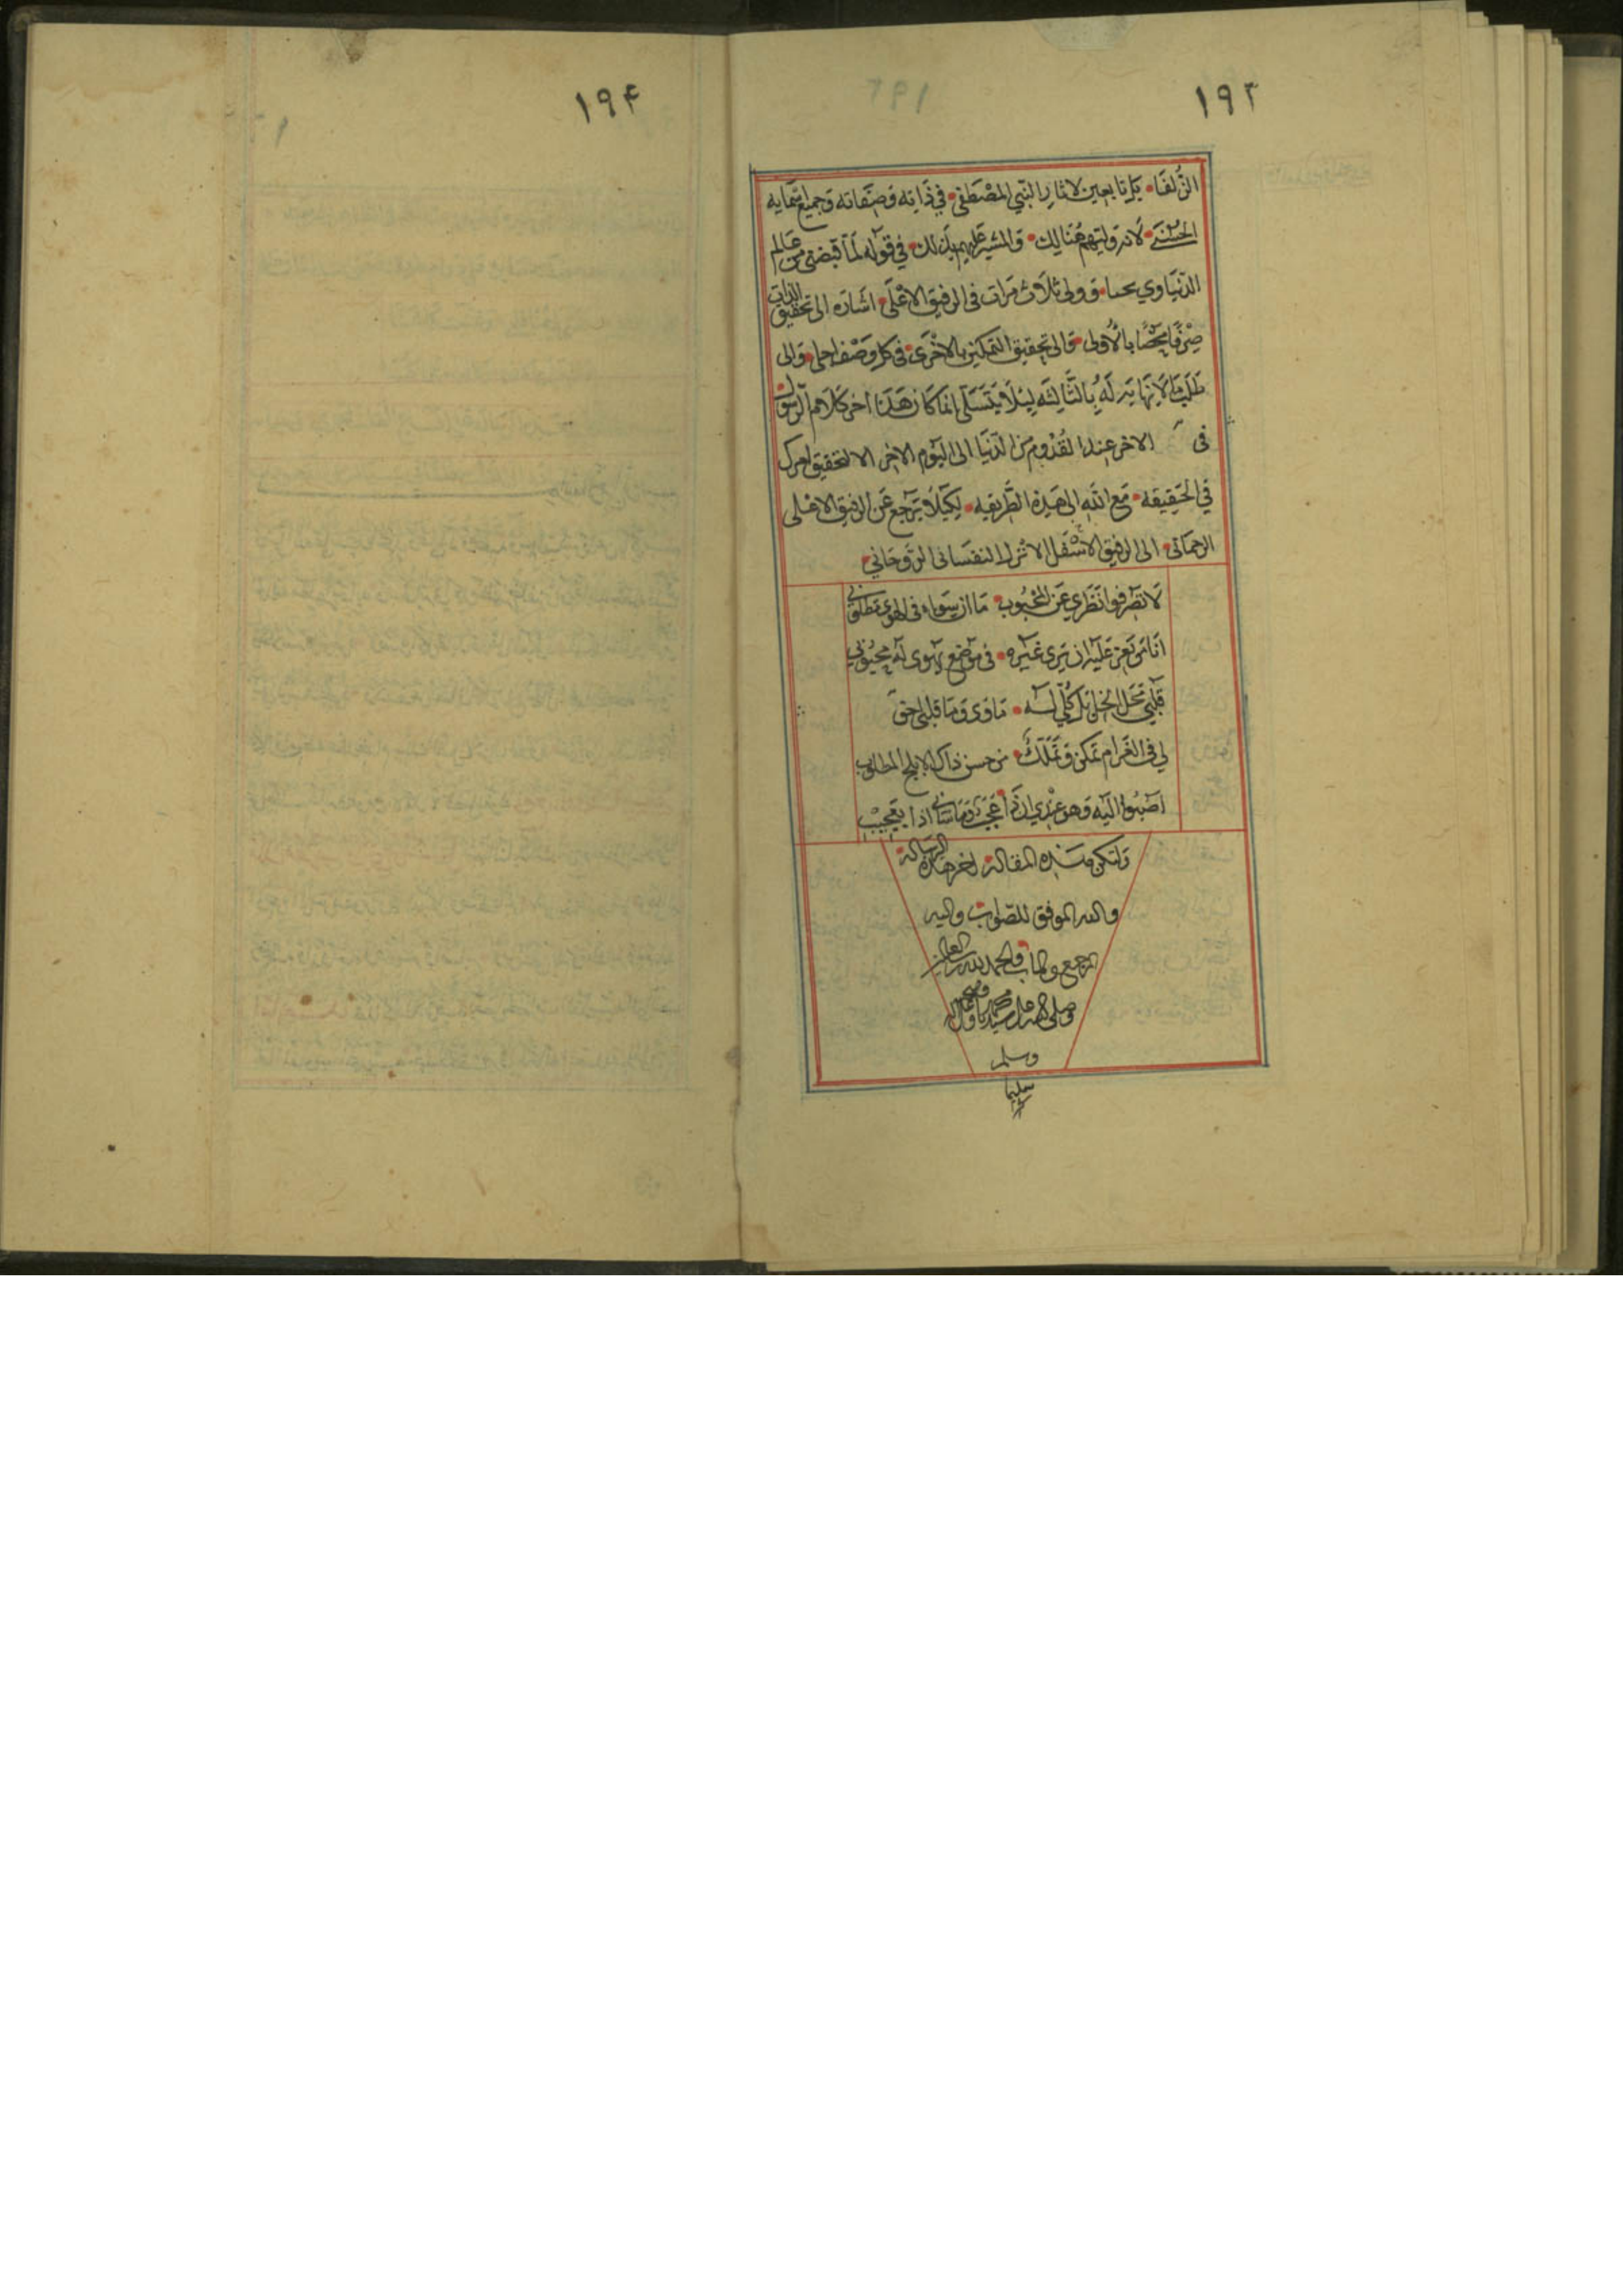 ١٩٤
١٩٢
الزلفا يا تابعين لاثار النبي المصطفى في ذاته وصفاته وجميع اسمايه
الحسنى لانه وليهم هنالك والمشير عليهم بذلك في قوله لما قبضتى من عالم
الدنياوي ثلاث مرات فى الرفيق الاعلى اشاره الى تحقيق الذات
صرفا محضا بالاولى والى تحقيق التمكين بالاخرى فى كل وصف والى
طلب ما لا نهايه له بالثالثه ليلا يتسلى انما كان هذا اخر كلام الرسول
فى الاخر عند القدوم من الدنيا الى اليوم الاخر الا لتحقيق
في الحقيقه مع الله الى هذه الطريقه لكيلا يرجع عن الرفيق الاعلى
الرحمانى الى الرفيق الاسفل الانزل النفسانى الروحاني
لا تصرفوا نظري عن المحبوب ما ان سواه فى الهوى مطلوبي
انا من تعز عليه ان يرى غيره فى موضع يهوى له محبوبي
قلبي محل الخل بل كلي له
لي فى الغرام تمكن وتملك من حسن ذاك الابلج المطلوب
اصبوا اليه وهو عندي ان ذا عجب وما شانى اذا بعجيب
ولتكن هذه المقالة اخر هذه الرسالة
والله الموفق للصواب واليه
المرجع والماب والحمد لله رب العالمين
وصلى الله على سيدنا محمد وعلى اله وصحبه
وسلم
تسليما